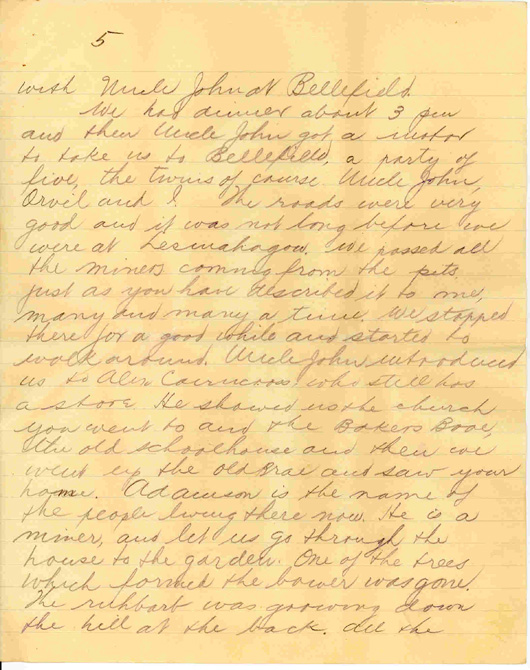 5
with Uncle John at Bellefield.
We had dinner about 3 pm
and then Uncle John got a motor
to take us to Bellefield, a party of
five, the twins of course Uncle John,
Orvil and I. The roads were very
good and it was not long before we
were at Lesmahagow. We passed all
the miners coming from the pits,
just as you have described it to me,
many and many a time. We stopped
there for a good while and started to
walk around. Uncle John introduced
us to Alex Cairncross who still has
a store. He showed us the church
you went to and the Bakers Brae,
the old schoolhouse and then we
went up the old Brae and saw your
home. Adamson is the name of
the people living there now. He is a
miner, and let us go through the
house to the garden. One of the trees
which formed the bower was gone.
The ruhbart was growing down
the hill at the back. All the